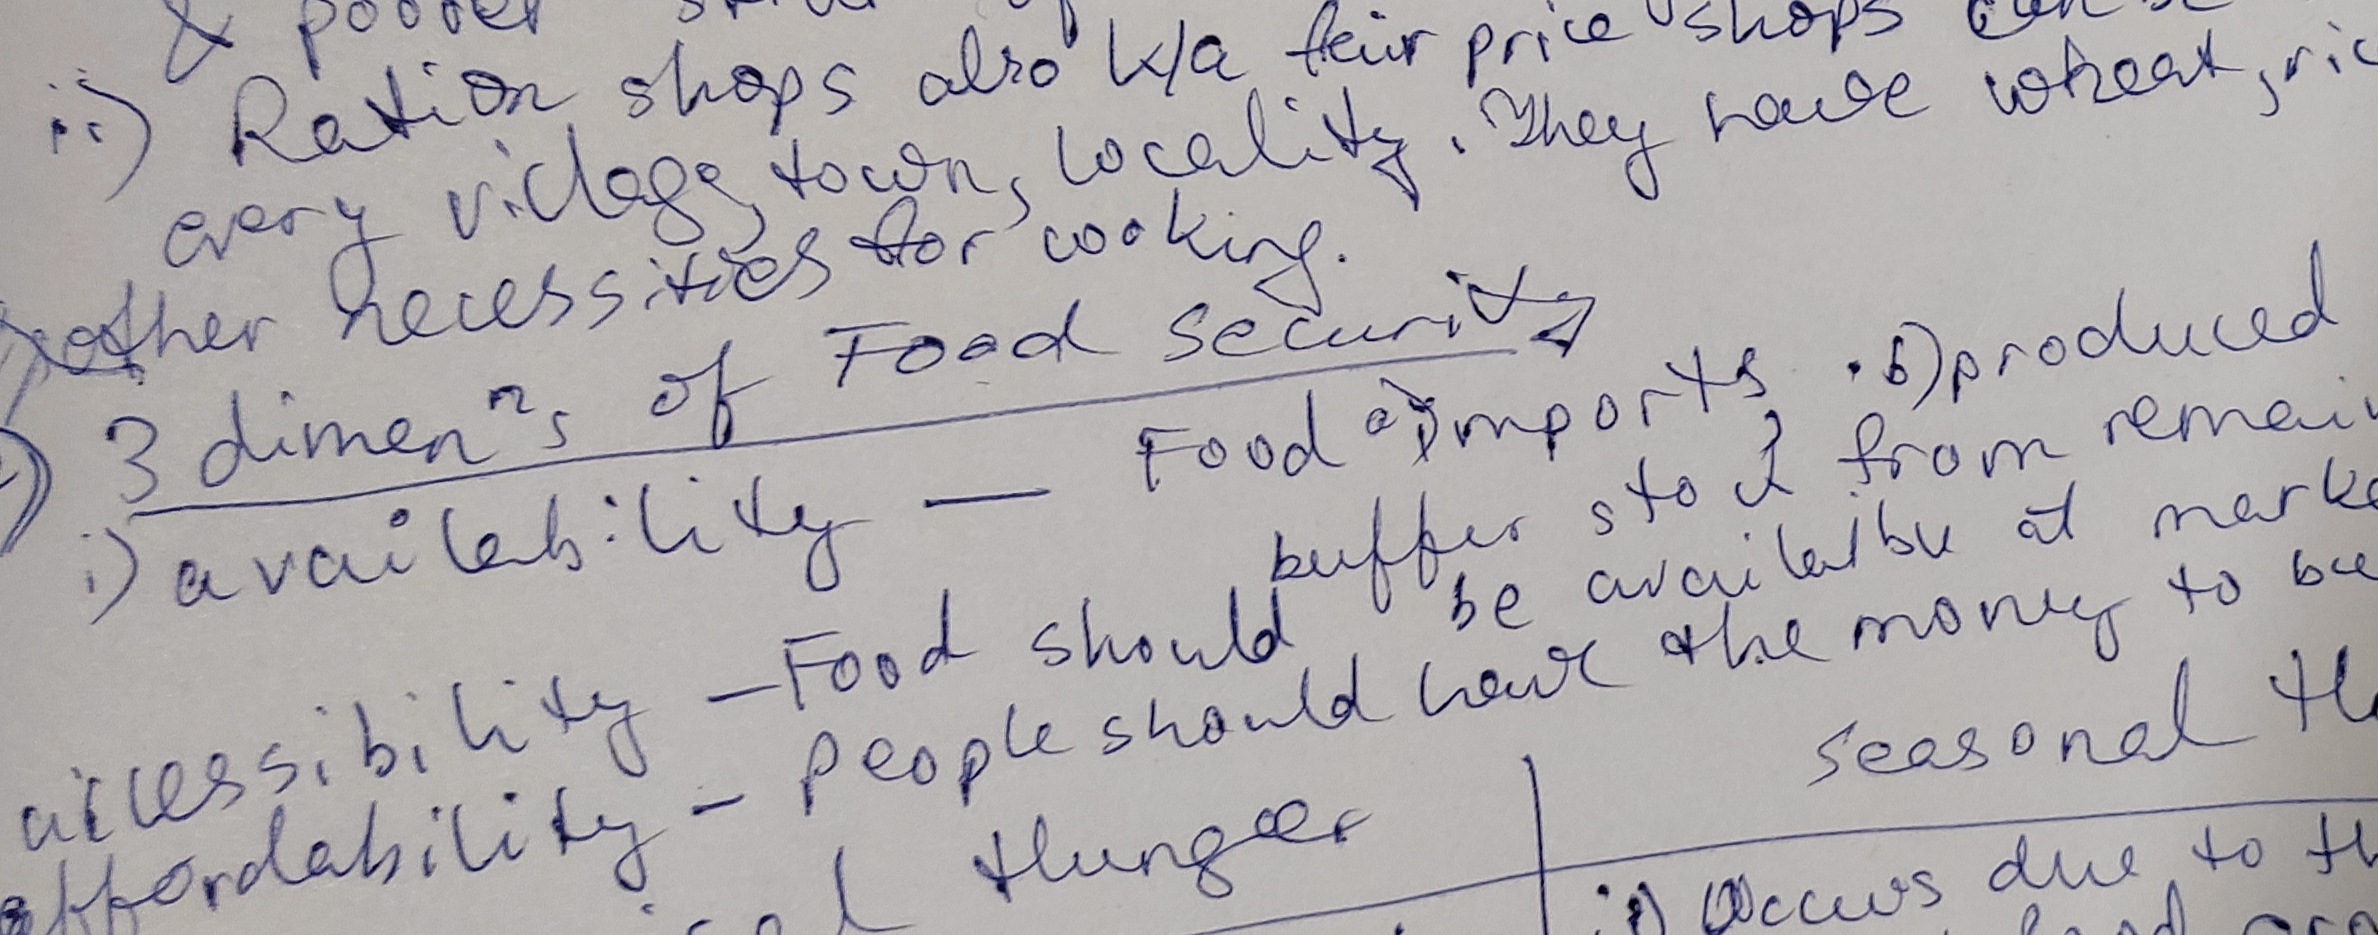 & poorer
ii) Ration shops also k/a fair price shops can be
every village, town, locality. They have wheat, ric
other necessities for cooking.
3 dimenⁿs of Food Security
i) availability — Food a) imports . b) produced
buffer stock from remai
accessibility - Food should be availalble at marke
affordability - People should have the money to bu
Hunger
seasonal
i) Occurs due to th